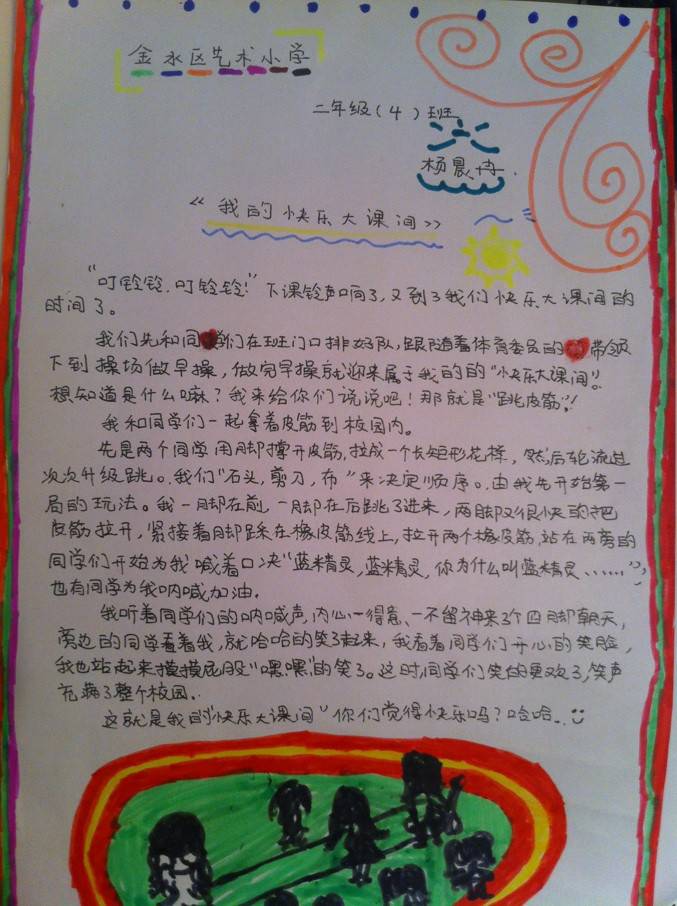 金永区艺术小学
二年级(4)班
杨晨冉.
“我的快乐大课间”
“叮铃铃,叮铃铃!”下课铃声响了,又到了我们快乐大课间的
时间了。
我们先和同学们在班门口排好队,跟随着体育委员的带领
下到操场做早操,做完早操就迎来属于我的的“快乐大课间”。
想知道是什么嘛?我来给你们说说吧!那就是“跳皮筋”!
我和同学们一起拿着皮筋到校园内。
先是两个同学用脚撑开皮筋,拉成一个长矩形花样,然后轮流逐
次次升级跳。我们“石头,剪刀,布”来决定顺序。由我先开始第一
局的玩法。我一脚在前,一脚在后跳了进来,两脚又很快的把
皮筋拉开,紧接着脚踩在橡皮筋线上,拉开两个橡皮筋,站在两旁的
同学们开始为我喊着口决“蓝精灵,蓝精灵,你为什么叫蓝精灵……”,
也有同学为我呐喊加油.
我听着同学们的呐喊声,内心一得意、一不留神来了个四脚朝天,
旁边的同学看着我,就哈哈的笑了起来,我看着同学们开心的笑脸,
我也站起来摸摸屁股“嘿嘿”的笑了。这时同学们笑的更欢了,笑声
充满了整个校园..
这就是我的“快乐大课间”你们觉得快乐吗?哈哈..